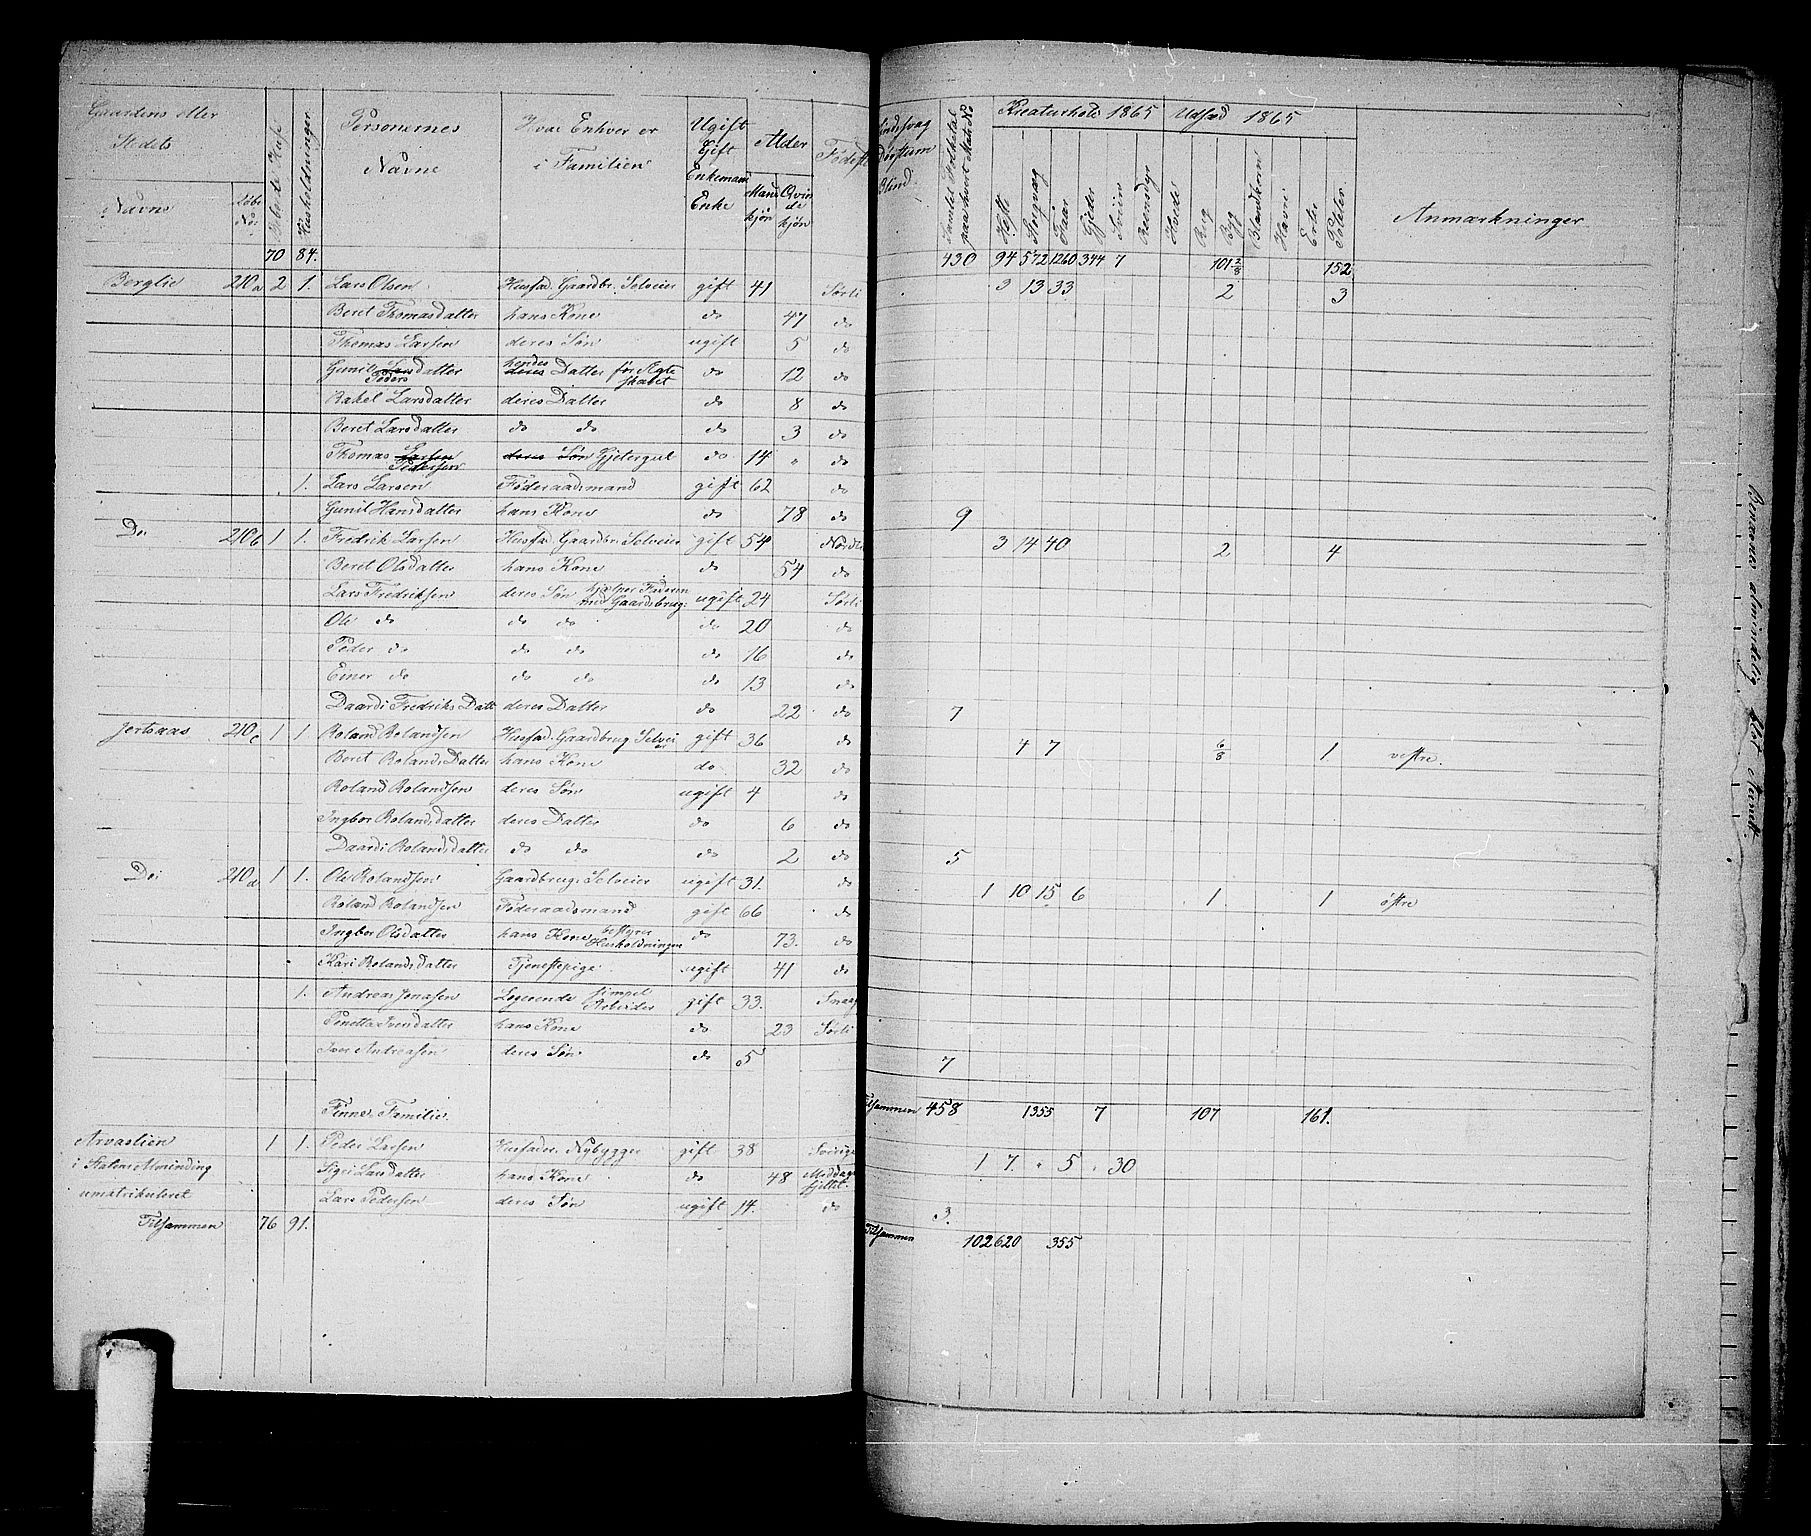 Gaardens eller Stedets Navne | Løbe No | Beboede Huse | Husholdninger | Personernes Navne | Hvad Enhver er i Familien | Ugift Gift Enkemand Enke | Alder Mandkjøn Qvindekjøn | Fødeste | Sindssvag Døvstum Blind. | Samlet Folketal paa hvert Matr No | Kreaturhold 1865 Heste Storqvæg Faar Gjeder Sviin Rensdyr | Udsæd 1865 Hvede Rug Byg Blandkorn Havre Erter Poteter | Anmærkninger
70 84. 430 94 572 1260 344 7 101 2/8 152
Berglie 210a 2 1. Lars Olsen Husfad. Gaardbr. Selveier gift 41 Sørli 3 13 33 2 3
Beret Thomasdatter hans Kone do 47 do
Thomas Larsen deres Søn ugift 5 do
Gunil Lars Peders datter deres hendes Datter før Ægteskabet do 12 do
Rakel Larsdatter deres Datter do 8 do
Beret Larsdatter do do do 3 do
Thomas Larsen Pedersen deres Søn Gjetergut do 14 " do
1. Lars Larsen Føderaadsmand gift 62 do
Gunil Hansdatter hans Kone do 78 do 9
Do 210b 1 1. Fredrik Larsen Husfad. Gaardbr. Selveier gift 54 Nordli 3 14 40 2 4
Beret Olsdatter hans Kone do 54 do
Lars Fredriksen deres Søn hjelper Faderen med Gaardsbrug. ugift 24 Sørli
Ole do do do do 20 do
Peder do do do do 16 do
Einer do do do do 13 do
Daardi Fredriks Datt deres Datter do 22 do 7
Jertsaas 210c 1 1 Roland Rolandsen Husfad. Gaardbrug Selveier gift 36 do 4 7 6/8 1 vestre.
Beret Rolands Datter hans Kone do 32 do
Roland Rolandsen deres Søn ugift 4 do
Ingbor Rolandsdatter deres Datter do 6 do
Daardi Rolandsdatter do do do 2 do 5
Do. 210d 1 1. Ole Rolandsen Gaardbrug. Selveier ugift 31. do 1 10 15 6 1 1 østre
Roland Rolandsen Føderaadsmand gift 66 do
Ingbor Olsdatter hans Kone bestyrer Husholdningen do 73. do
Kari Rolandsdatter Tjenestepige ugift 41 do
1. Andreas Jonassen Logerende simpel Arbeider gift 33. Snaas
Penetta Iversdatter hans Kone do 23 Sørli
Iver Andreasen deres Søn do 5 7
Finne Familie. Tilsammen 458 1355 7 107 161.
Arvaslien 1 1. Peder Larsen Husfader. Nybygger gift 38 Sverige
i Statens Alminding Sigri Larsdatter hans Kone do 48 Meddags fjeldet. 1 7. " 5 " 30
umatrikuleret Lars Pedersen deres Søn ugift 14. do 3.
Tilsammen 76 91. Tilsammen 102 620 355